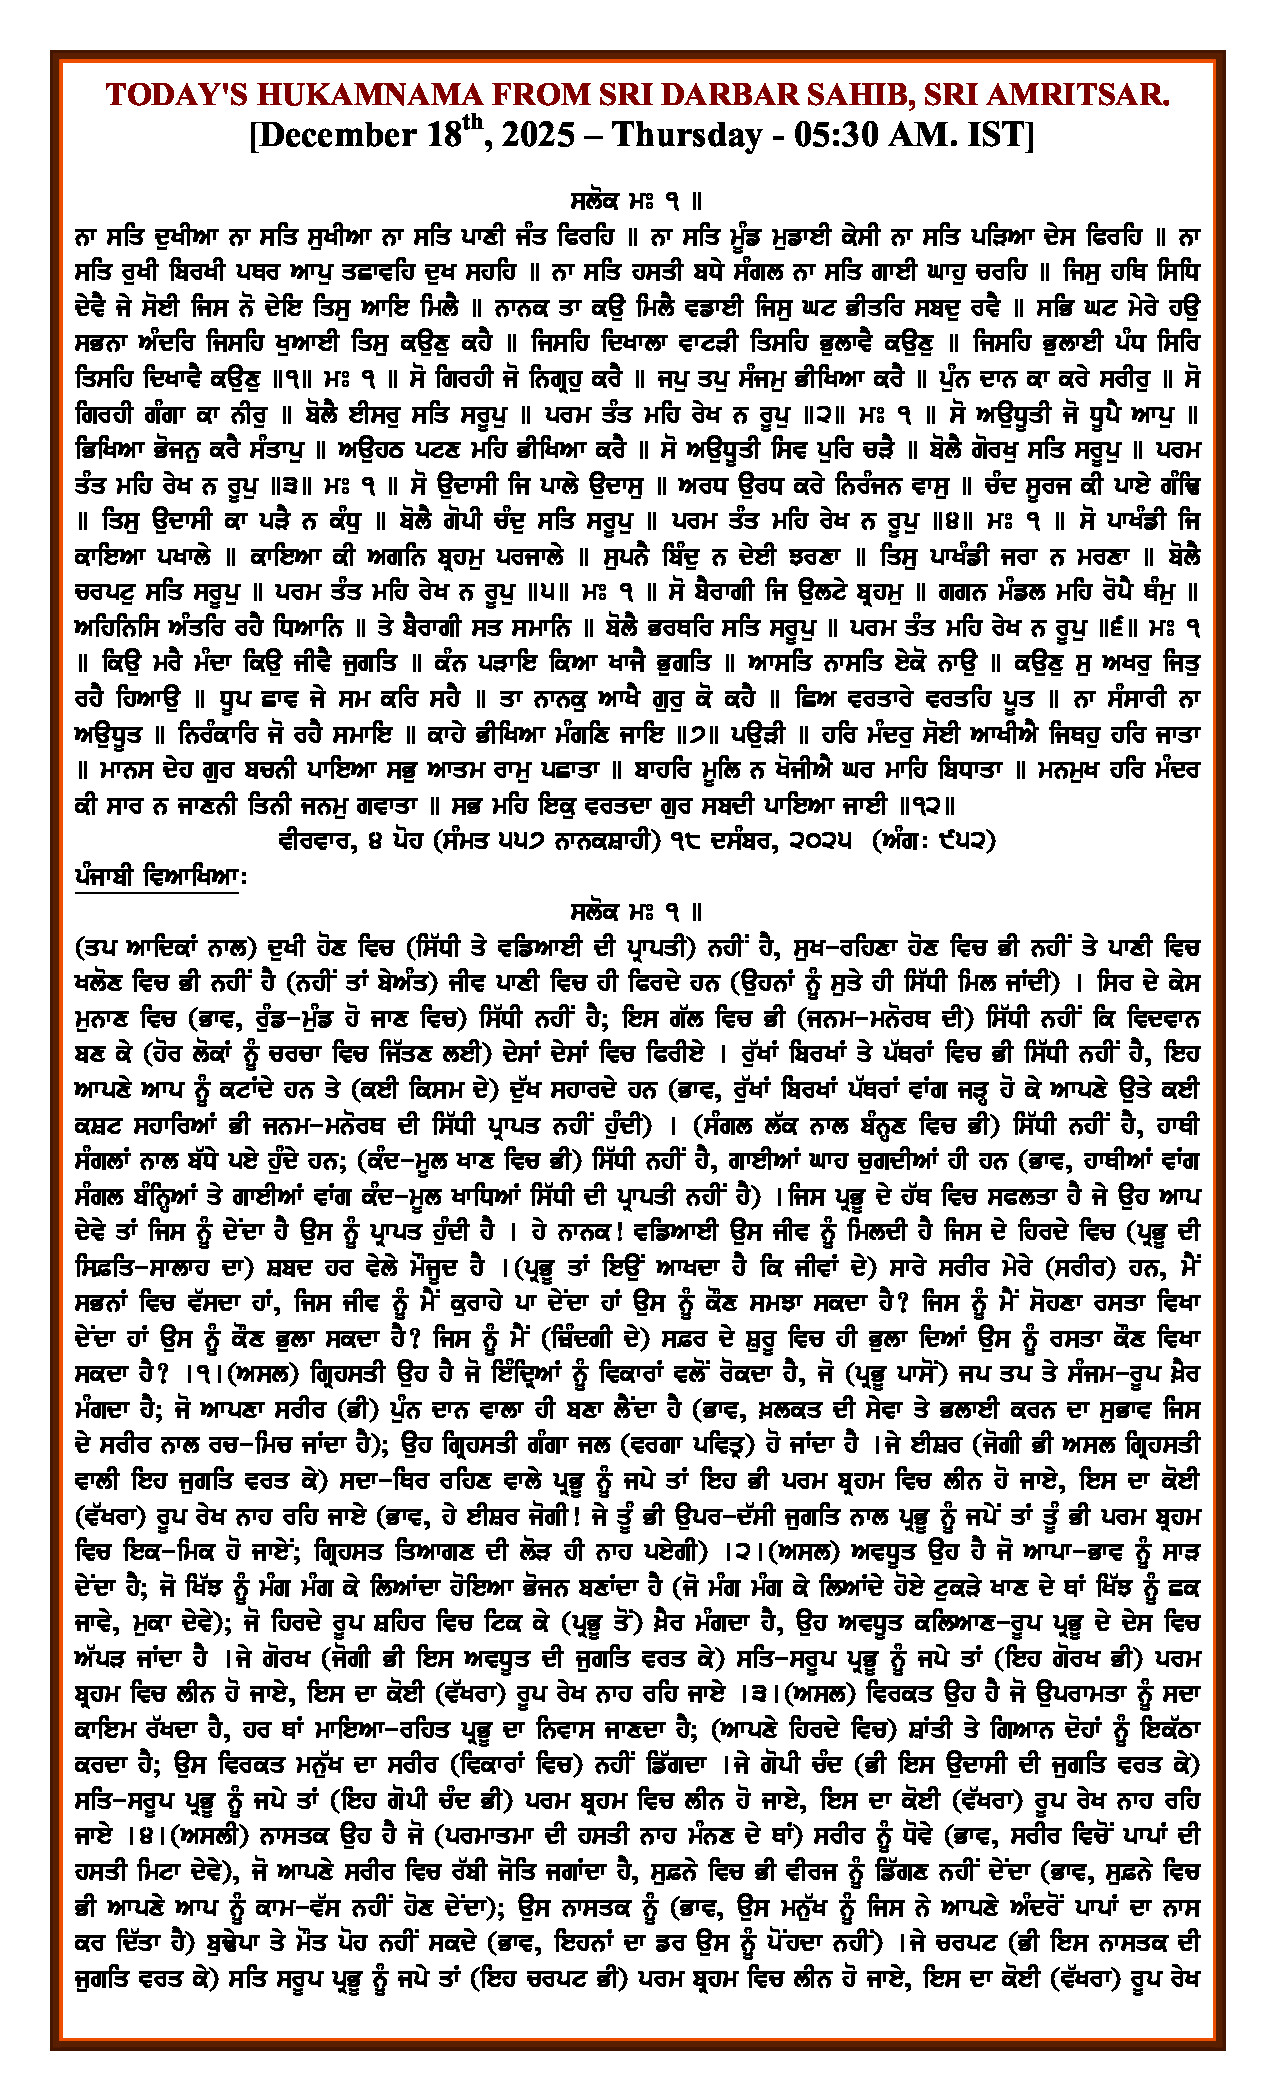 TODAY'S HUKAMNAMA FROM SRI DARBAR SAHIB, SRI AMRITSAR.
[December 18th, 2025 – Thursday - 05:30 AM. IST]
ਸਲੋਕ ਮਃ ੧ ॥
ਨਾ ਸਤਿ ਦੁਖੀਆ ਨਾ ਸਤਿ ਸੁਖੀਆ ਨਾ ਸਤਿ ਪਾਣੀ ਜੰਤ ਫਿਰਹਿ ॥ ਨਾ ਸਤਿ ਮੂੰਡ ਮੁਡਾਈ ਕੇਸੀ ਨਾ ਸਤਿ ਪੜਿਆ ਦੇਸ ਫਿਰਹਿ ॥ ਨਾ
ਸਤਿ ਰੁਖੀ ਬਿਰਖੀ ਪਥਰ ਆਪੁ ਤਛਾਵਹਿ ਦੁਖ ਸਹਹਿ ॥ ਨਾ ਸਤਿ ਹਸਤੀ ਬਧੇ ਸੰਗਲ ਨਾ ਸਤਿ ਗਾਈ ਘਾਹੁ ਚਰਹਿ ॥ ਜਿਸੁ ਹਥਿ ਸਿਧਿ
ਦੇਵੈ ਜੇ ਸੋਈ ਜਿਸ ਨੋ ਦੇਇ ਤਿਸੁ ਆਇ ਮਿਲੈ ॥ ਨਾਨਕ ਤਾ ਕਉ ਮਿਲੈ ਵਡਾਈ ਜਿਸੁ ਘਟ ਭੀਤਰਿ ਸਬਦੁ ਰਵੈ ॥ ਸਭਿ ਘਟ ਮੇਰੇ ਹਉ
ਸਭਨਾ ਅੰਦਰਿ ਜਿਸਹਿ ਖੁਆਈ ਤਿਸੁ ਕਉਣੁ ਕਹੈ ॥ ਜਿਸਹਿ ਦਿਖਾਲਾ ਵਾਟੜੀ ਤਿਸਹਿ ਭੁਲਾਵੈ ਕਉਣੁ ॥ ਜਿਸਹਿ ਭੁਲਾਈ ਪੰਧ ਸਿਰਿ
ਤਿਸਹਿ ਦਿਖਾਵੈ ਕਉਣੁ ॥੧॥ ਮਃ ੧ ॥ ਸੋ ਗਿਰਹੀ ਜੋ ਨਿਗ੍ਰਹੁ ਕਰੈ ॥ ਜਪੁ ਤਪੁ ਸੰਜਮੁ ਭੀਖਿਆ ਕਰੈ ॥ ਪੁੰਨ ਦਾਨ ਕਾ ਕਰੇ ਸਰੀਰੁ ॥ ਸੋ
ਗਿਰਹੀ ਗੰਗਾ ਕਾ ਨੀਰੁ ॥ ਬੋਲੈ ਈਸਰੁ ਸਤਿ ਸਰੂਪੁ ॥ ਪਰਮ ਤੰਤ ਮਹਿ ਰੇਖ ਨ ਰੂਪੁ ॥੨॥ ਮਃ ੧ ॥ ਸੋ ਅਉਧੂਤੀ ਜੋ ਧੂਪੈ ਆਪੁ ॥
ਭਿਖਿਆ ਭੋਜਨੁ ਕਰੈ ਸੰਤਾਪੁ ॥ ਅਉਹਠ ਪਟਣ ਮਹਿ ਭੀਖਿਆ ਕਰੈ ॥ ਸੋ ਅਉਧੂਤੀ ਸਿਵ ਪੁਰਿ ਚੜੈ ॥ ਬੋਲੈ ਗੋਰਖੁ ਸਤਿ ਸਰੂਪੁ ॥ ਪਰਮ
ਤੰਤ ਮਹਿ ਰੇਖ ਨ ਰੂਪੁ ॥੩॥ ਮਃ ੧ ॥ ਸੋ ਉਦਾਸੀ ਜਿ ਪਾਲੇ ਉਦਾਸੁ ॥ ਅਰਧ ਉਰਧ ਕਰੇ ਨਿਰੰਜਨ ਵਾਸੁ ॥ ਚੰਦ ਸੂਰਜ ਕੀ ਪਾਏ ਗੰਢਿ
॥ ਤਿਸੁ ਉਦਾਸੀ ਕਾ ਪੜੈ ਨ ਕੰਧੁ ॥ ਬੋਲੈ ਗੋਪੀ ਚੰਦੁ ਸਤਿ ਸਰੂਪੁ ॥ ਪਰਮ ਤੰਤ ਮਹਿ ਰੇਖ ਨ ਰੂਪੁ ॥੪॥ ਮਃ ੧ ॥ ਸੋ ਪਾਖੰਡੀ ਜਿ
ਕਾਇਆ ਪਖਾਲੇ ॥ ਕਾਇਆ ਕੀ ਅਗਨਿ ਬ੍ਰਹਮੁ ਪਰਜਾਲੇ ॥ ਸੁਪਨੈ ਬਿੰਦੁ ਨ ਦੇਈ ਝਰਣਾ ॥ ਤਿਸੁ ਪਾਖੰਡੀ ਜਰਾ ਨ ਮਰਣਾ ॥ ਬੋਲੈ
ਚਰਪਟੁ ਸਤਿ ਸਰੂਪੁ ॥ ਪਰਮ ਤੰਤ ਮਹਿ ਰੇਖ ਨ ਰੂਪੁ ॥੫॥ ਮਃ ੧ ॥ ਸੋ ਬੈਰਾਗੀ ਜਿ ਉਲਟੇ ਬ੍ਰਹਮੁ ॥ ਗਗਨ ਮੰਡਲ ਮਹਿ ਰੋਪੈ ਥੰਮੁ ॥
ਅਹਿਨਿਸਿ ਅੰਤਰਿ ਰਹੈ ਧਿਆਨਿ ॥ ਤੇ ਬੈਰਾਗੀ ਸਤ ਸਮਾਨਿ ॥ ਬੋਲੈ ਭਰਥਰਿ ਸਤਿ ਸਰੂਪੁ ॥ ਪਰਮ ਤੰਤ ਮਹਿ ਰੇਖ ਨ ਰੂਪੁ ॥੬॥ ਮਃ ੧
॥ ਕਿਉ ਮਰੈ ਮੰਦਾ ਕਿਉ ਜੀਵੈ ਜੁਗਤਿ ॥ ਕੰਨ ਪੜਾਇ ਕਿਆ ਖਾਜੈ ਭੁਗਤਿ ॥ ਆਸਤਿ ਨਾਸਤਿ ਏਕੋ ਨਾਉ ॥ ਕਉਣੁ ਸੁ ਅਖਰੁ ਜਿਤੁ
ਰਹੈ ਹਿਆਉ ॥ ਧੂਪ ਛਾਵ ਜੇ ਸਮ ਕਰਿ ਸਹੈ ॥ ਤਾ ਨਾਨਕੁ ਆਖੈ ਗੁਰੁ ਕੋ ਕਹੈ ॥ ਛਿਅ ਵਰਤਾਰੇ ਵਰਤਹਿ ਪੂਤ ॥ ਨਾ ਸੰਸਾਰੀ ਨਾ
ਅਉਧੂਤ ॥ ਨਿਰੰਕਾਰਿ ਜੋ ਰਹੈ ਸਮਾਇ ॥ ਕਾਹੇ ਭੀਖਿਆ ਮੰਗਣਿ ਜਾਇ ॥੭॥ ਪਉੜੀ ॥ ਹਰਿ ਮੰਦਰੁ ਸੋਈ ਆਖੀਐ ਜਿਥਹੁ ਹਰਿ ਜਾਤਾ
॥ ਮਾਨਸ ਦੇਹ ਗੁਰ ਬਚਨੀ ਪਾਇਆ ਸਭੁ ਆਤਮ ਰਾਮੁ ਪਛਾਤਾ ॥ ਬਾਹਰਿ ਮੂਲਿ ਨ ਖੋਜੀਐ ਘਰ ਮਾਹਿ ਬਿਧਾਤਾ ॥ ਮਨਮੁਖ ਹਰਿ ਮੰਦਰ
ਕੀ ਸਾਰ ਨ ਜਾਣਨੀ ਤਿਨੀ ਜਨਮੁ ਗਵਾਤਾ ॥ ਸਭ ਮਹਿ ਇਕੁ ਵਰਤਦਾ ਗੁਰ ਸਬਦੀ ਪਾਇਆ ਜਾਈ ॥੧੨॥
ਵੀਰਵਾਰ, ੪ ਪੋਹ (ਸੰਮਤ ੫੫੭ ਨਾਨਕਸ਼ਾਹੀ) ੧੮ ਦਸੰਬਰ, ੨੦੨੫ (ਅੰਗ: ੯੫੨)
ਪੰਜਾਬੀ ਵਿਆਖਿਆ:
ਸਲੋਕ ਮਃ ੧ ॥
(ਤਪ ਆਦਿਕਾਂ ਨਾਲ) ਦੁਖੀ ਹੋਣ ਵਿਚ (ਸਿੱਧੀ ਤੇ ਵਡਿਆਈ ਦੀ ਪ੍ਰਾਪਤੀ) ਨਹੀਂ ਹੈ, ਸੁਖ-ਰਹਿਣਾ ਹੋਣ ਵਿਚ ਭੀ ਨਹੀਂ ਤੇ ਪਾਣੀ ਵਿਚ
ਖਲੋਣ ਵਿਚ ਭੀ ਨਹੀਂ ਹੈ (ਨਹੀਂ ਤਾਂ ਬੇਅੰਤ) ਜੀਵ ਪਾਣੀ ਵਿਚ ਹੀ ਫਿਰਦੇ ਹਨ (ਉਹਨਾਂ ਨੂੰ ਸੁਤੇ ਹੀ ਸਿੱਧੀ ਮਿਲ ਜਾਂਦੀ) । ਸਿਰ ਦੇ ਕੇਸ
ਮੁਨਾਣ ਵਿਚ (ਭਾਵ, ਰੁੰਡ-ਮੁੰਡ ਹੋ ਜਾਣ ਵਿਚ) ਸਿੱਧੀ ਨਹੀਂ ਹੈ; ਇਸ ਗੱਲ ਵਿਚ ਭੀ (ਜਨਮ-ਮਨੋਰਥ ਦੀ) ਸਿੱਧੀ ਨਹੀਂ ਕਿ ਵਿਦਵਾਨ
ਬਣ ਕੇ (ਹੋਰ ਲੋਕਾਂ ਨੂੰ ਚਰਚਾ ਵਿਚ ਜਿੱਤਣ ਲਈ) ਦੇਸਾਂ ਦੇਸਾਂ ਵਿਚ ਫਿਰੀਏ । ਰੁੱਖਾਂ ਬਿਰਖਾਂ ਤੇ ਪੱਥਰਾਂ ਵਿਚ ਭੀ ਸਿੱਧੀ ਨਹੀਂ ਹੈ, ਇਹ
ਆਪਣੇ ਆਪ ਨੂੰ ਕਟਾਂਦੇ ਹਨ ਤੇ (ਕਈ ਕਿਸਮ ਦੇ) ਦੁੱਖ ਸਹਾਰਦੇ ਹਨ (ਭਾਵ, ਰੁੱਖਾਂ ਬਿਰਖਾਂ ਪੱਥਰਾਂ ਵਾਂਗ ਜੜ੍ਹ ਹੋ ਕੇ ਆਪਣੇ ਉਤੇ ਕਈ
ਕਸ਼ਟ ਸਹਾਰਿਆਂ ਭੀ ਜਨਮ-ਮਨੋਰਥ ਦੀ ਸਿੱਧੀ ਪ੍ਰਾਪਤ ਨਹੀਂ ਹੁੰਦੀ) । (ਸੰਗਲ ਲੱਕ ਨਾਲ ਬੰਨ੍ਹਣ ਵਿਚ ਭੀ) ਸਿੱਧੀ ਨਹੀਂ ਹੈ, ਹਾਥੀ
ਸੰਗਲਾਂ ਨਾਲ ਬੱਧੇ ਪਏ ਹੁੰਦੇ ਹਨ; (ਕੰਦ-ਮੂਲ ਖਾਣ ਵਿਚ ਭੀ) ਸਿੱਧੀ ਨਹੀਂ ਹੈ, ਗਾਈਆਂ ਘਾਹ ਚੁਗਦੀਆਂ ਹੀ ਹਨ (ਭਾਵ, ਹਾਥੀਆਂ ਵਾਂਗ
ਸੰਗਲ ਬੰਨ੍ਹਿਆਂ ਤੇ ਗਾਈਆਂ ਵਾਂਗ ਕੰਦ-ਮੂਲ ਖਾਧਿਆਂ ਸਿੱਧੀ ਦੀ ਪ੍ਰਾਪਤੀ ਨਹੀਂ ਹੈ) ।ਜਿਸ ਪ੍ਰਭੂ ਦੇ ਹੱਥ ਵਿਚ ਸਫਲਤਾ ਹੈ ਜੇ ਉਹ ਆਪ
ਦੇਵੇ ਤਾਂ ਜਿਸ ਨੂੰ ਦੇਂਦਾ ਹੈ ਉਸ ਨੂੰ ਪ੍ਰਾਪਤ ਹੁੰਦੀ ਹੈ । ਹੇ ਨਾਨਕ! ਵਡਿਆਈ ਉਸ ਜੀਵ ਨੂੰ ਮਿਲਦੀ ਹੈ ਜਿਸ ਦੇ ਹਿਰਦੇ ਵਿਚ (ਪ੍ਰਭੂ ਦੀ
ਸਿਫ਼ਤਿ-ਸਾਲਾਹ ਦਾ) ਸ਼ਬਦ ਹਰ ਵੇਲੇ ਮੌਜੂਦ ਹੈ ।(ਪ੍ਰਭੂ ਤਾਂ ਇਉਂ ਆਖਦਾ ਹੈ ਕਿ ਜੀਵਾਂ ਦੇ) ਸਾਰੇ ਸਰੀਰ ਮੇਰੇ (ਸਰੀਰ) ਹਨ, ਮੈਂ
ਸਭਨਾਂ ਵਿਚ ਵੱਸਦਾ ਹਾਂ, ਜਿਸ ਜੀਵ ਨੂੰ ਮੈਂ ਕੁਰਾਹੇ ਪਾ ਦੇਂਦਾ ਹਾਂ ਉਸ ਨੂੰ ਕੌਣ ਸਮਝਾ ਸਕਦਾ ਹੈ? ਜਿਸ ਨੂੰ ਮੈਂ ਸੋਹਣਾ ਰਸਤਾ ਵਿਖਾ
ਦੇਂਦਾ ਹਾਂ ਉਸ ਨੂੰ ਕੌਣ ਭੁਲਾ ਸਕਦਾ ਹੈ? ਜਿਸ ਨੂੰ ਮੈਂ (ਜ਼ਿੰਦਗੀ ਦੇ) ਸਫ਼ਰ ਦੇ ਸ਼ੁਰੂ ਵਿਚ ਹੀ ਭੁਲਾ ਦਿਆਂ ਉਸ ਨੂੰ ਰਸਤਾ ਕੌਣ ਵਿਖਾ
ਸਕਦਾ ਹੈ? ।੧।(ਅਸਲ) ਗ੍ਰਿਹਸਤੀ ਉਹ ਹੈ ਜੋ ਇੰਦ੍ਰਿਆਂ ਨੂੰ ਵਿਕਾਰਾਂ ਵਲੋਂ ਰੋਕਦਾ ਹੈ, ਜੋ (ਪ੍ਰਭੂ ਪਾਸੋਂ) ਜਪ ਤਪ ਤੇ ਸੰਜਮ-ਰੂਪ ਖ਼ੈਰ
ਮੰਗਦਾ ਹੈ; ਜੋ ਆਪਣਾ ਸਰੀਰ (ਭੀ) ਪੁੰਨ ਦਾਨ ਵਾਲਾ ਹੀ ਬਣਾ ਲੈਂਦਾ ਹੈ (ਭਾਵ, ਖ਼ਲਕਤ ਦੀ ਸੇਵਾ ਤੇ ਭਲਾਈ ਕਰਨ ਦਾ ਸੁਭਾਵ ਜਿਸ
ਦੇ ਸਰੀਰ ਨਾਲ ਰਚ-ਮਿਚ ਜਾਂਦਾ ਹੈ); ਉਹ ਗ੍ਰਿਹਸਤੀ ਗੰਗਾ ਜਲ (ਵਰਗਾ ਪਵਿਤ੍ਰ) ਹੋ ਜਾਂਦਾ ਹੈ ।ਜੇ ਈਸ਼ਰ (ਜੋਗੀ ਭੀ ਅਸਲ ਗ੍ਰਿਹਸਤੀ
ਵਾਲੀ ਇਹ ਜੁਗਤਿ ਵਰਤ ਕੇ) ਸਦਾ-ਥਿਰ ਰਹਿਣ ਵਾਲੇ ਪ੍ਰਭੂ ਨੂੰ ਜਪੇ ਤਾਂ ਇਹ ਭੀ ਪਰਮ ਬ੍ਰਹਮ ਵਿਚ ਲੀਨ ਹੋ ਜਾਏ, ਇਸ ਦਾ ਕੋਈ
(ਵੱਖਰਾ) ਰੂਪ ਰੇਖ ਨਾਹ ਰਹਿ ਜਾਏ (ਭਾਵ, ਹੇ ਈਸ਼ਰ ਜੋਗੀ! ਜੇ ਤੂੰ ਭੀ ਉਪਰ-ਦੱਸੀ ਜੁਗਤਿ ਨਾਲ ਪ੍ਰਭੂ ਨੂੰ ਜਪੇਂ ਤਾਂ ਤੂੰ ਭੀ ਪਰਮ ਬ੍ਰਹਮ
ਵਿਚ ਇਕ-ਮਿਕ ਹੋ ਜਾਏਂ; ਗ੍ਰਿਹਸਤ ਤਿਆਗਣ ਦੀ ਲੋੜ ਹੀ ਨਾਹ ਪਏਗੀ) ।੨।(ਅਸਲ) ਅਵਧੂਤ ਉਹ ਹੈ ਜੋ ਆਪਾ-ਭਾਵ ਨੂੰ ਸਾੜ
ਦੇਂਦਾ ਹੈ; ਜੋ ਖਿੱਝ ਨੂੰ ਮੰਗ ਮੰਗ ਕੇ ਲਿਆਂਦਾ ਹੋਇਆ ਭੋਜਨ ਬਣਾਂਦਾ ਹੈ (ਜੋ ਮੰਗ ਮੰਗ ਕੇ ਲਿਆਂਦੇ ਹੋਏ ਟੁਕੜੇ ਖਾਣ ਦੇ ਥਾਂ ਖਿੱਝ ਨੂੰ ਛਕ
ਜਾਵੇ, ਮੁਕਾ ਦੇਵੇ); ਜੋ ਹਿਰਦੇ ਰੂਪ ਸ਼ਹਿਰ ਵਿਚ ਟਿਕ ਕੇ (ਪ੍ਰਭੂ ਤੋਂ) ਖ਼ੈਰ ਮੰਗਦਾ ਹੈ, ਉਹ ਅਵਧੂਤ ਕਲਿਆਣ-ਰੂਪ ਪ੍ਰਭੂ ਦੇ ਦੇਸ ਵਿਚ
ਅੱਪੜ ਜਾਂਦਾ ਹੈ ।ਜੇ ਗੋਰਖ (ਜੋਗੀ ਭੀ ਇਸ ਅਵਧੂਤ ਦੀ ਜੁਗਤਿ ਵਰਤ ਕੇ) ਸਤਿ-ਸਰੂਪ ਪ੍ਰਭੂ ਨੂੰ ਜਪੇ ਤਾਂ (ਇਹ ਗੋਰਖ ਭੀ) ਪਰਮ
ਬ੍ਰਹਮ ਵਿਚ ਲੀਨ ਹੋ ਜਾਏ, ਇਸ ਦਾ ਕੋਈ (ਵੱਖਰਾ) ਰੂਪ ਰੇਖ ਨਾਹ ਰਹਿ ਜਾਏ ।੩।(ਅਸਲ) ਵਿਰਕਤ ਉਹ ਹੈ ਜੋ ਉਪਰਾਮਤਾ ਨੂੰ ਸਦਾ
ਕਾਇਮ ਰੱਖਦਾ ਹੈ, ਹਰ ਥਾਂ ਮਾਇਆ-ਰਹਿਤ ਪ੍ਰਭੂ ਦਾ ਨਿਵਾਸ ਜਾਣਦਾ ਹੈ; (ਆਪਣੇ ਹਿਰਦੇ ਵਿਚ) ਸ਼ਾਂਤੀ ਤੇ ਗਿਆਨ ਦੋਹਾਂ ਨੂੰ ਇਕੱਠਾ
ਕਰਦਾ ਹੈ; ਉਸ ਵਿਰਕਤ ਮਨੁੱਖ ਦਾ ਸਰੀਰ (ਵਿਕਾਰਾਂ ਵਿਚ) ਨਹੀਂ ਡਿੱਗਦਾ ।ਜੇ ਗੋਪੀ ਚੰਦ (ਭੀ ਇਸ ਉਦਾਸੀ ਦੀ ਜੁਗਤਿ ਵਰਤ ਕੇ)
ਸਤਿ-ਸਰੂਪ ਪ੍ਰਭੂ ਨੂੰ ਜਪੇ ਤਾਂ (ਇਹ ਗੋਪੀ ਚੰਦ ਭੀ) ਪਰਮ ਬ੍ਰਹਮ ਵਿਚ ਲੀਨ ਹੋ ਜਾਏ, ਇਸ ਦਾ ਕੋਈ (ਵੱਖਰਾ) ਰੂਪ ਰੇਖ ਨਾਹ ਰਹਿ
ਜਾਏ ।੪।(ਅਸਲੀ) ਨਾਸਤਕ ਉਹ ਹੈ ਜੋ (ਪਰਮਾਤਮਾ ਦੀ ਹਸਤੀ ਨਾਹ ਮੰਨਣ ਦੇ ਥਾਂ) ਸਰੀਰ ਨੂੰ ਧੋਵੇ (ਭਾਵ, ਸਰੀਰ ਵਿਚੋਂ ਪਾਪਾਂ ਦੀ
ਹਸਤੀ ਮਿਟਾ ਦੇਵੇ), ਜੋ ਆਪਣੇ ਸਰੀਰ ਵਿਚ ਰੱਬੀ ਜੋਤਿ ਜਗਾਂਦਾ ਹੈ, ਸੁਫ਼ਨੇ ਵਿਚ ਭੀ ਵੀਰਜ ਨੂੰ ਡਿੱਗਣ ਨਹੀਂ ਦੇਂਦਾ (ਭਾਵ, ਸੁਫ਼ਨੇ ਵਿਚ
ਭੀ ਆਪਣੇ ਆਪ ਨੂੰ ਕਾਮ-ਵੱਸ ਨਹੀਂ ਹੋਣ ਦੇਂਦਾ); ਉਸ ਨਾਸਤਕ ਨੂੰ (ਭਾਵ, ਉਸ ਮਨੁੱਖ ਨੂੰ ਜਿਸ ਨੇ ਆਪਣੇ ਅੰਦਰੋਂ ਪਾਪਾਂ ਦਾ ਨਾਸ
ਕਰ ਦਿੱਤਾ ਹੈ) ਬੁਢੇਪਾ ਤੇ ਮੌਤ ਪੋਹ ਨਹੀਂ ਸਕਦੇ (ਭਾਵ, ਇਹਨਾਂ ਦਾ ਡਰ ਉਸ ਨੂੰ ਪੋਂਹਦਾ ਨਹੀਂ) ।ਜੇ ਚਰਪਟ (ਭੀ ਇਸ ਨਾਸਤਕ ਦੀ
ਜੁਗਤਿ ਵਰਤ ਕੇ) ਸਤਿ ਸਰੂਪ ਪ੍ਰਭੂ ਨੂੰ ਜਪੇ ਤਾਂ (ਇਹ ਚਰਪਟ ਭੀ) ਪਰਮ ਬ੍ਰਹਮ ਵਿਚ ਲੀਨ ਹੋ ਜਾਏ, ਇਸ ਦਾ ਕੋਈ (ਵੱਖਰਾ) ਰੂਪ ਰੇਖ